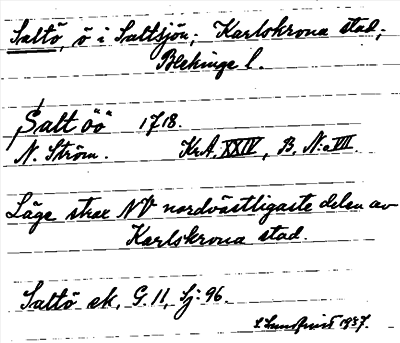 Saltö, ö i Saltsjön; Karlskrona stad;
Blekinge l.
Salt öö 1718.
N. Ström. KrA, XXIV, B, N:o VII.
Läge strax NV nordvästligaste delen av
Karlskrona stad.
Saltö ek. G. 11, Sj: 96.
1937.